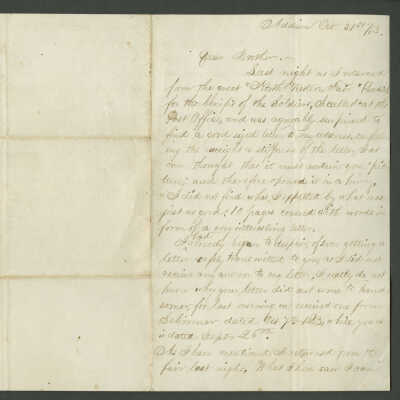 Addison Oct. 31st /63.
Dear Brother,
Last night as I returned
from the great "North Western Fair" held
for the benefit of the Soldiers, I called at the
Post Office, and was agreeably surprised to
find a good sized letter to my address,
ing the weight & stiffness of the letter, but
one thought that it must contain your pic
ture; and therefore opened it in a hurry.
I did not find what I expected but what was
just as good: 10 pages covered with words in
form of a very interesting letter.
I already began to despair of ever getting a
letter reply transmitted to you, as I did not
receive any answer to my letter. I really do not
know why your letter did not come to hand
sooner, for last evening we received one from
dated Oct 7th 1863, while yours
is dated Sept. 26th.
As I have mentioned I returned from the
fair last night. What I have seen I can